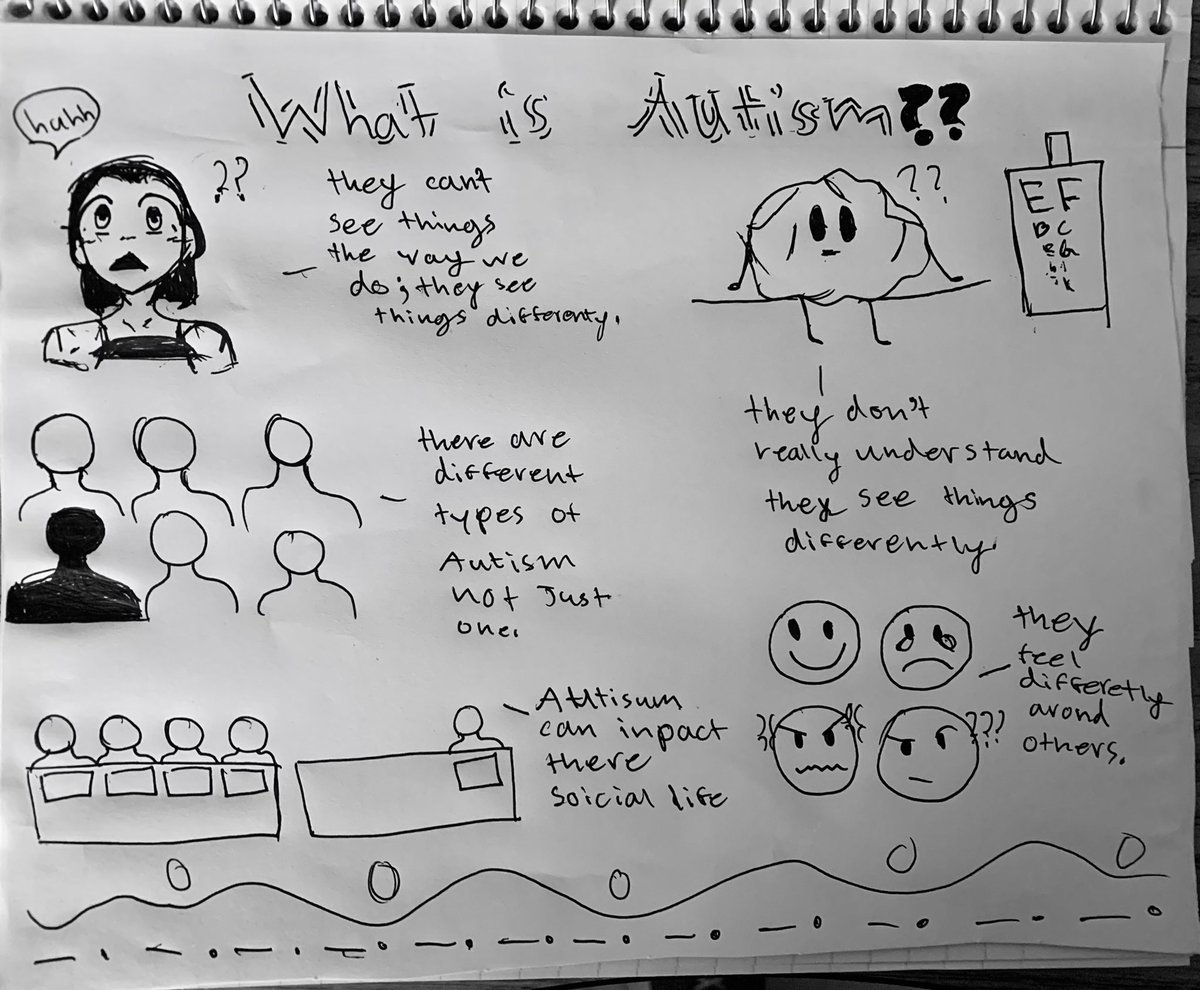 What is Autism??
huhh
??
they can't
see things
the way we
do; they see
things differenty.
??
EF
BC
they don't
really understand
they see things
differently.
there are
different
types of
Autism
not just
one.
they
feel
differetly
arond
others.
???
Autisum
can inpact
there
soicial life